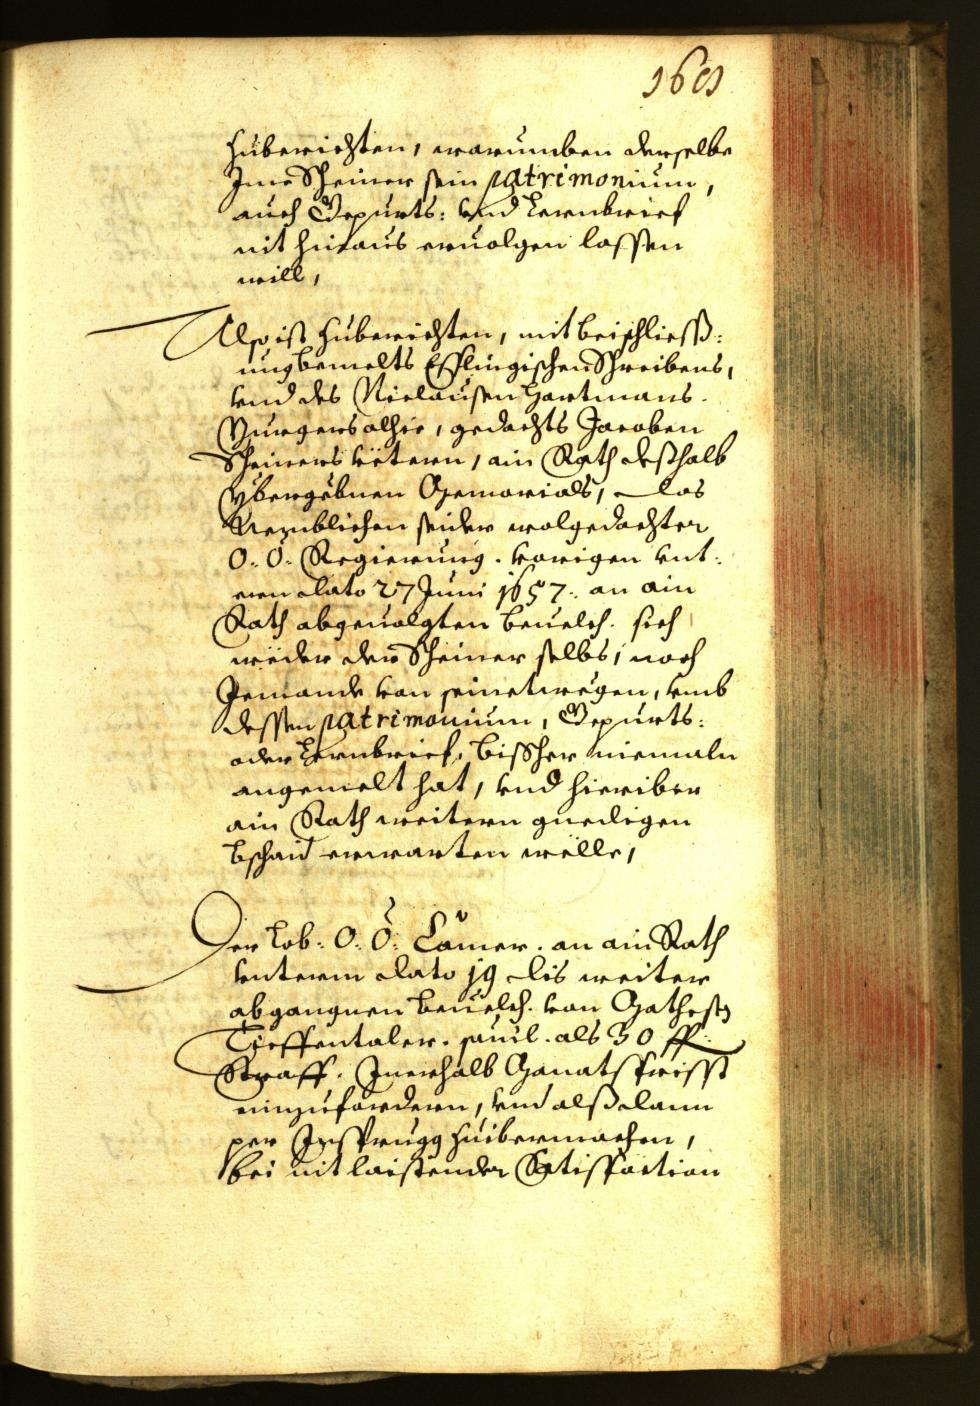 1601
zuberichten, warumben derselbe
Ime Scheiner sein patrimonium,
auch Gepurts: vnd Lernbrief
nit hinaus ervolgen lassen
will,
Also ist zuberichten, mit beischliess:
ung bemelts Esslingischen Schreibens,
vnd des Niclausen Hartmans.
Burgers alhie, gedachts Jacoben
Scheiners vëtern, ain Rath desthalb
ybergebnen Memorials, das
Nemblichen seider wolgedachter
O: Ö: Regierung. vorigen vnt:
erm dato 27 Juni 1657. an ain
Rath abgevolgten bevelch. sich
weder der Scheiner selbs, noch
Jemandt von seinetwegen, vmb
dessen patrimonium, Gepurts:
oder Lernbrief, bissher niemaln
angemelt hat, vnd hieriber
ain Rath weitern gnedigen
bschaid erwarten wëlle,
Der Lob: O: Ö: Camer. an ain Rath
vnterm dato 19 dis weiter
abgangnen bevelch. von Mathesn
Tieffentaler. pauil. als 30 fl
Straff. Inerhalb Monatsfrisst
einzufordern, vnd alssdann
per Insprugg zuibermachen,
bei nit laistender Satisfaction